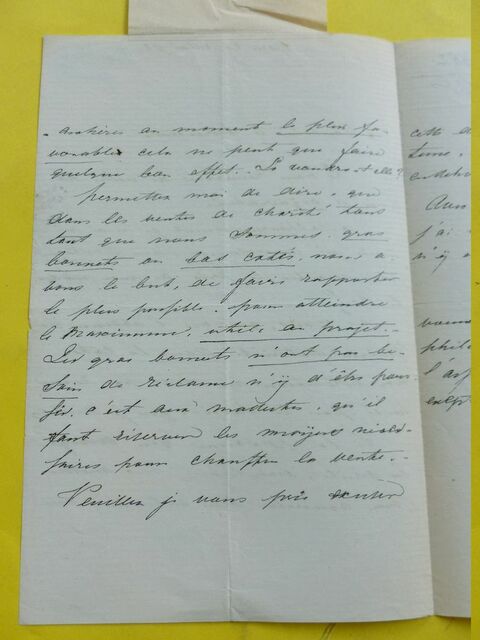 enchères au moment le plus fa-
vorable, cela ne peut que faire
quelque bon effet. - Le voudra-t-elle ?
permettez moi de dire, que
dans les ventes de charité tous
tant que nous sommes, gros
bonnets ou bas cotés, nous a-
vons le but, de faire rapporter
le plus possible, pour atteindre
le maximum, utile au projet.-
Les gros bonnets n'ont pas be-
soin de réclame n'y d'être pous-
sés, c'est aux modestes, qu'il
faut réserver les moyens néces-
saires pour chauffer la vente.-
Veuillez je vous prie
cette
Aun
j'ai
n'y a
vous
phil
l'as
excep